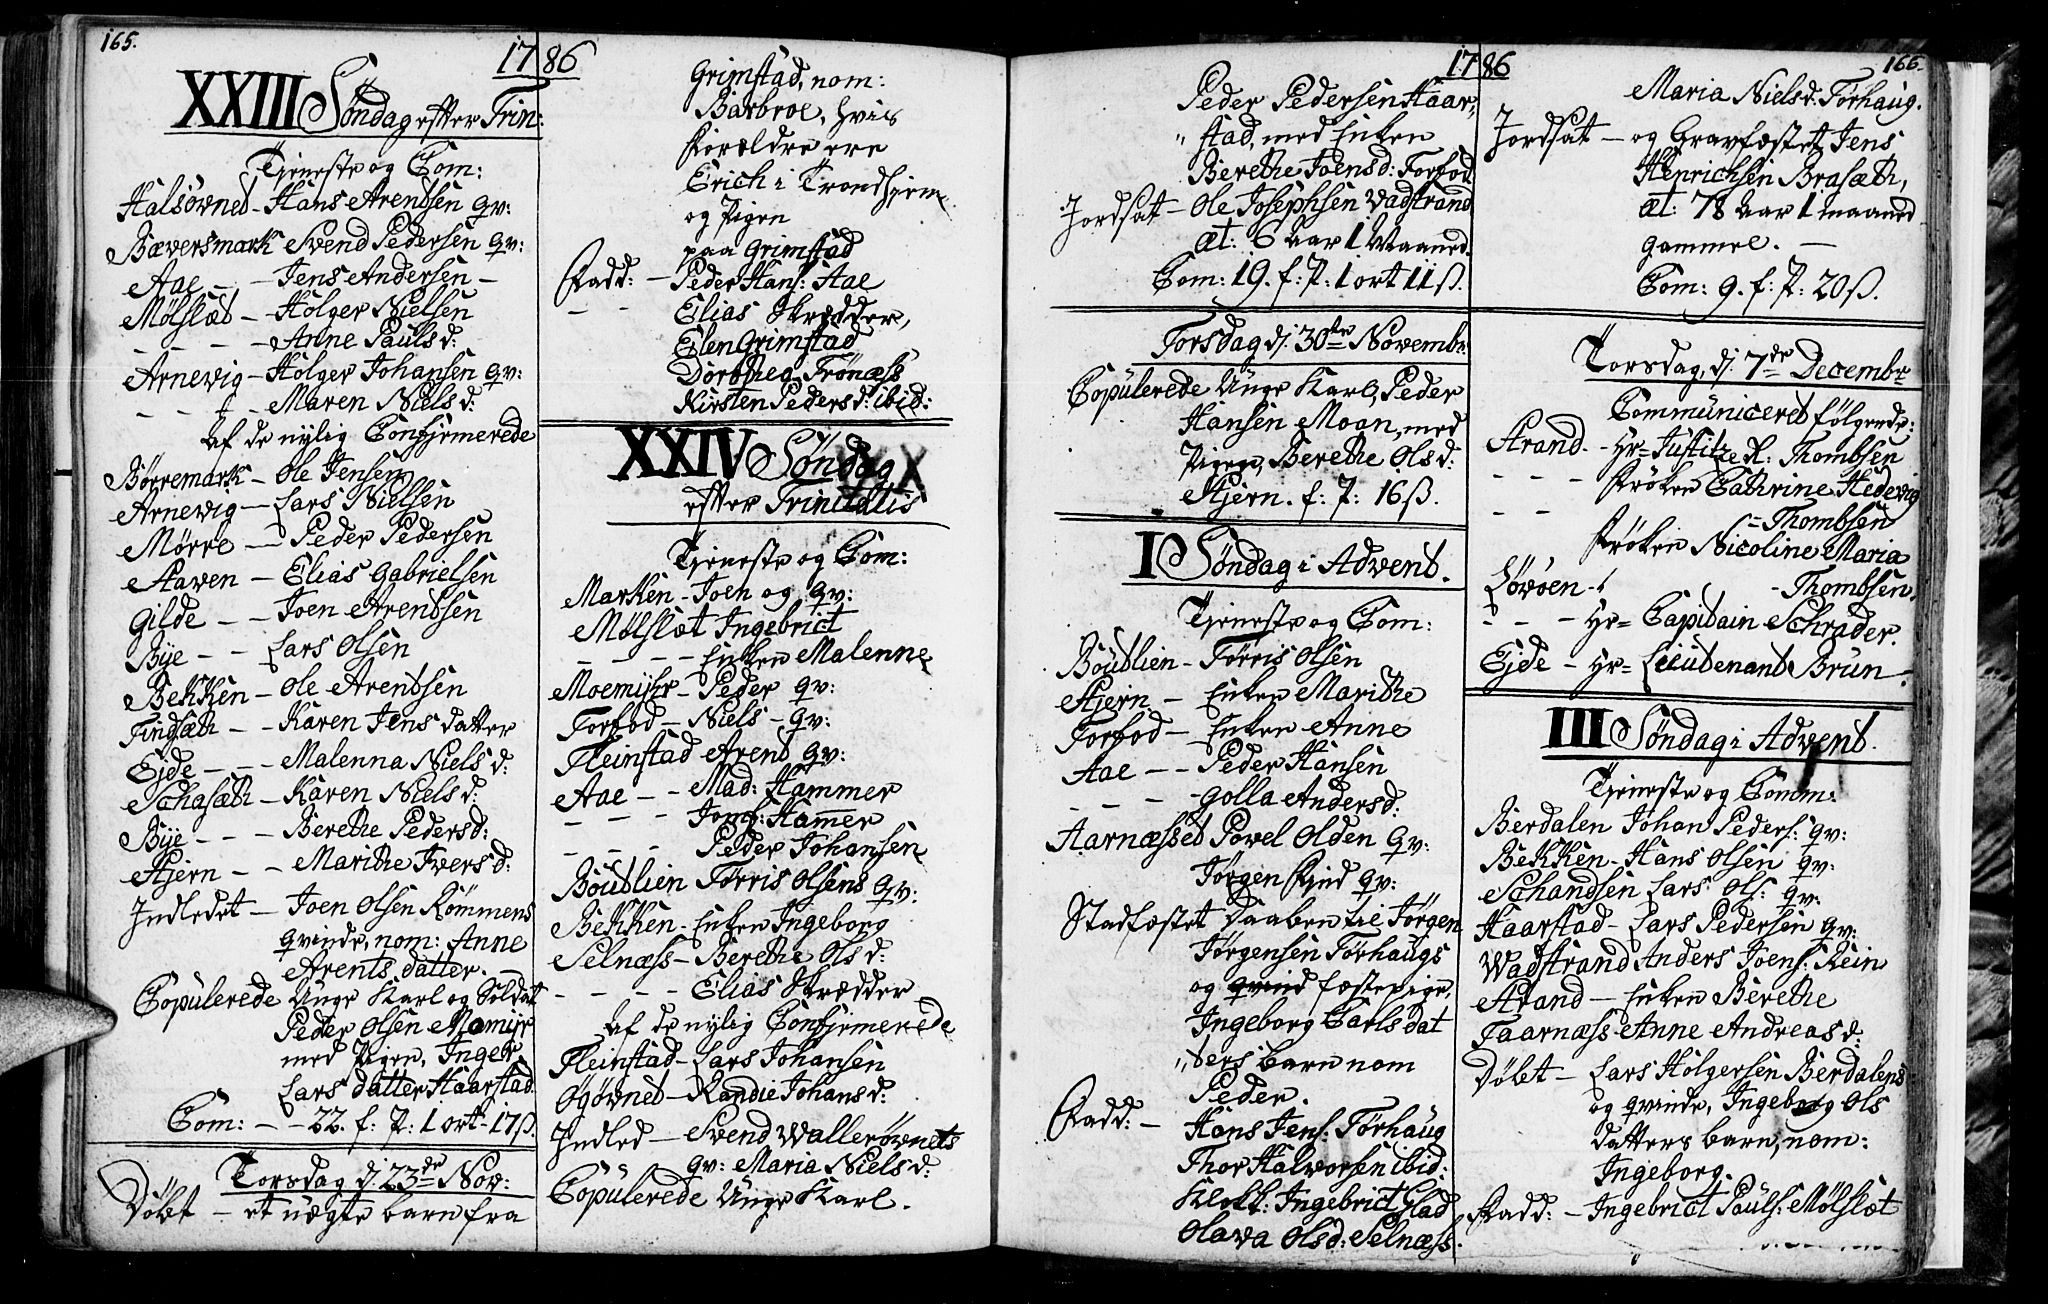 165.
1786
XXIII Søndag efter Trin:
Tieneste og Com:
Halsøvnet - Hans Arentsen qv:
Bæversmark Svend Pedersen qv:
Aae - - Jens Andersen -
Mølslæt - Holger Nielsen
- - - - Anne Pauls d:
Arnevig - Holger Johansen qv:
- - - Maren Niels d:
Af de nylig Confirmerede
Børremark - Ole Jensen
Arnevig - Lars Nielsen
Mørre - Peder Pedersen
Staven - Elias Gabrielsen
Gilde - - Joen Arentsen
Bÿe - - Lars Olsen
Bekken - Ole Arentsen
Tindsæth - Karen Jens datter
Ejde - - - Malenna Niels d:
Schasæth - Karen Niels d:
Bÿe - - - Berethe Peders d:
Stjern - - Marithe Ivers d:
Indledet - Joen Olsen Rømmens
qvinde, nom: Anne
Arents datter.
Copulerede Unge Karl og Soldat
Peder Olsen Momÿr
med Pigen, Inger
Lars datter Haarstad.
Com: - - 22. f: P: 1 ort - 17 ß.
Torsdag d: 23de Nov:
Døbt - et uægte barn fra
Grimstad, nom:
Barbroe, hvis
Forældre ere
Erich i Trondhjem
og Pigen
paa Grimstad
Fadd: - Peder Hans: Aae
- - Elias Skrædder,
Elen Grimstad
Dorthea Frönæss
Kirsten Peders d: ibid:
XXIV Søndag
efter Trinitatis
Tieneste og Com:
Marken - Joen og qv:
Mølslæt Ingebrict
- - - - Enken Malenne
Moemÿhr - Peder qv:
Forfod - Niels - qv:
Fleinstad Arent qv:
Aae - - Mad: Hammer
- - - Jomf: Hamer
- - - Peder Johansen
Böutlien Tørris Olsens qv:
Bekken - Enken Ingeborg
Selnæss - Berethe Ols d:
- - - - Elias Skrædder
Af de nylig Confirmerede
Fleinstad - Lars Johansen
Øgøvnet - Randie Johans d:
Indled - Svend Wallersøvnets
qv: Maria Niels d:
Copulerede Unge Karl.
1786
166.
Peder Pedersen Haar,
„ stad, med Enken
Berethe Joens d: Forfod
Jordsat - Ole Josephsen Vadstrand
Æt: 6 Aar 1 Maaned.
Com: 19. f: P: 1 ort 11 ß.
Torsdag d: 30te Novembr:
Copulerede Unge Karl, Peder
Hansen Moan, med
Pigen, Berethe Ols d:
Stjern. f: P: 16 ß.
I Søndag i Advent.
Tieneste og Com:
Böutlien - Tørris Olsen
Stjern - Enken Marithe
Forfod - Enken Anne
Aae - - Peder Hansen
- - - - Golla Anders d:
Aarnæsset Povel Olden qv:
Jørgen Rind qv:
Stadfæstet Daaben til Jørgen
Jørgensen Førhaugs
og qvind fæstepige,
Ingeborg Carls dat
„ ters barn nom
Peder.
Fadd: - Hans Jens: Førhaug
Thor Halvorsen ibid:
Klokk: Ingebrict Glad
Olava Ols d: Selnæss.
Maria Niels d: Førhaug.
Jordsat - og Gravfæstet Jens
Henrichsen Brasæth,
Æt: 78 Aar 1 maaned
gammel. -
Com: 9. f: P: 20 ß.
Torsdag, d: 7de Decembr
Communiceret følgende:
Strand. - Hr= Justitz R: Thombsen
- - - Frøken Cathrine Hedevig
- - = Thombsen
Frøken Nicoline Maria
Løvøen - - Thombsen.
- - - Hr= Capitain Schrader.
Ejde - Hr= Lieutenant Brun.
III Søndag i Advent.
Tieneste og Comm:
Berdalen Johan Peders: qv:
Bekken - Hans Olsen qv:
Schandsen Lars Ols: qv:
Haarstad - Lars Pedersen qv:
Wadstrand Anders Joens: Rein
Strand - Enken Berethe
Taarnæss - Anne Andreas d:
Døbt - Lars Holgersen Berdalens
og qvinde, Ingeborg Ols
datters barn, nom:
Ingeborg.
Fadd: - Ingebrict Pauls: Mølslæt